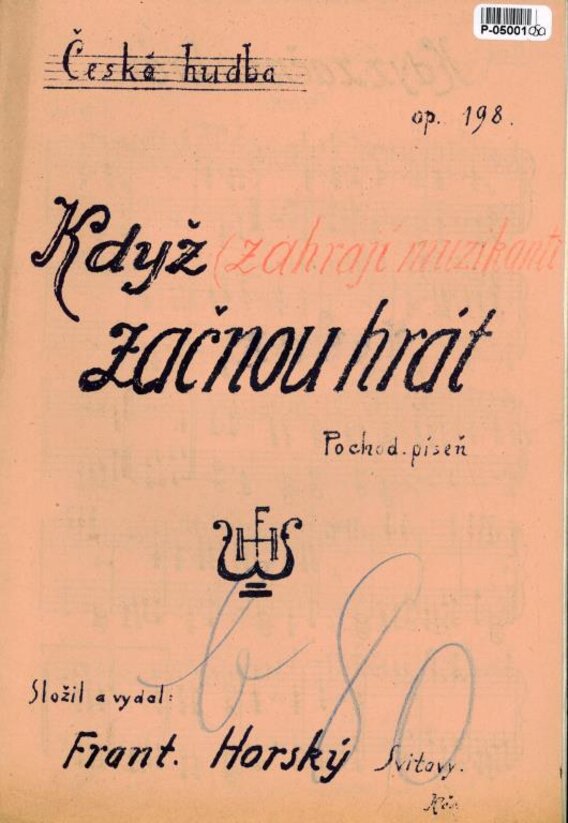 P-05001 080
Česká hudba
op. 198.
Když (zahrají muzikanti
začnou hrát
Pochod. píseň
FH
Složil a vydal:
b 80
Frant. Horský Svitavy.